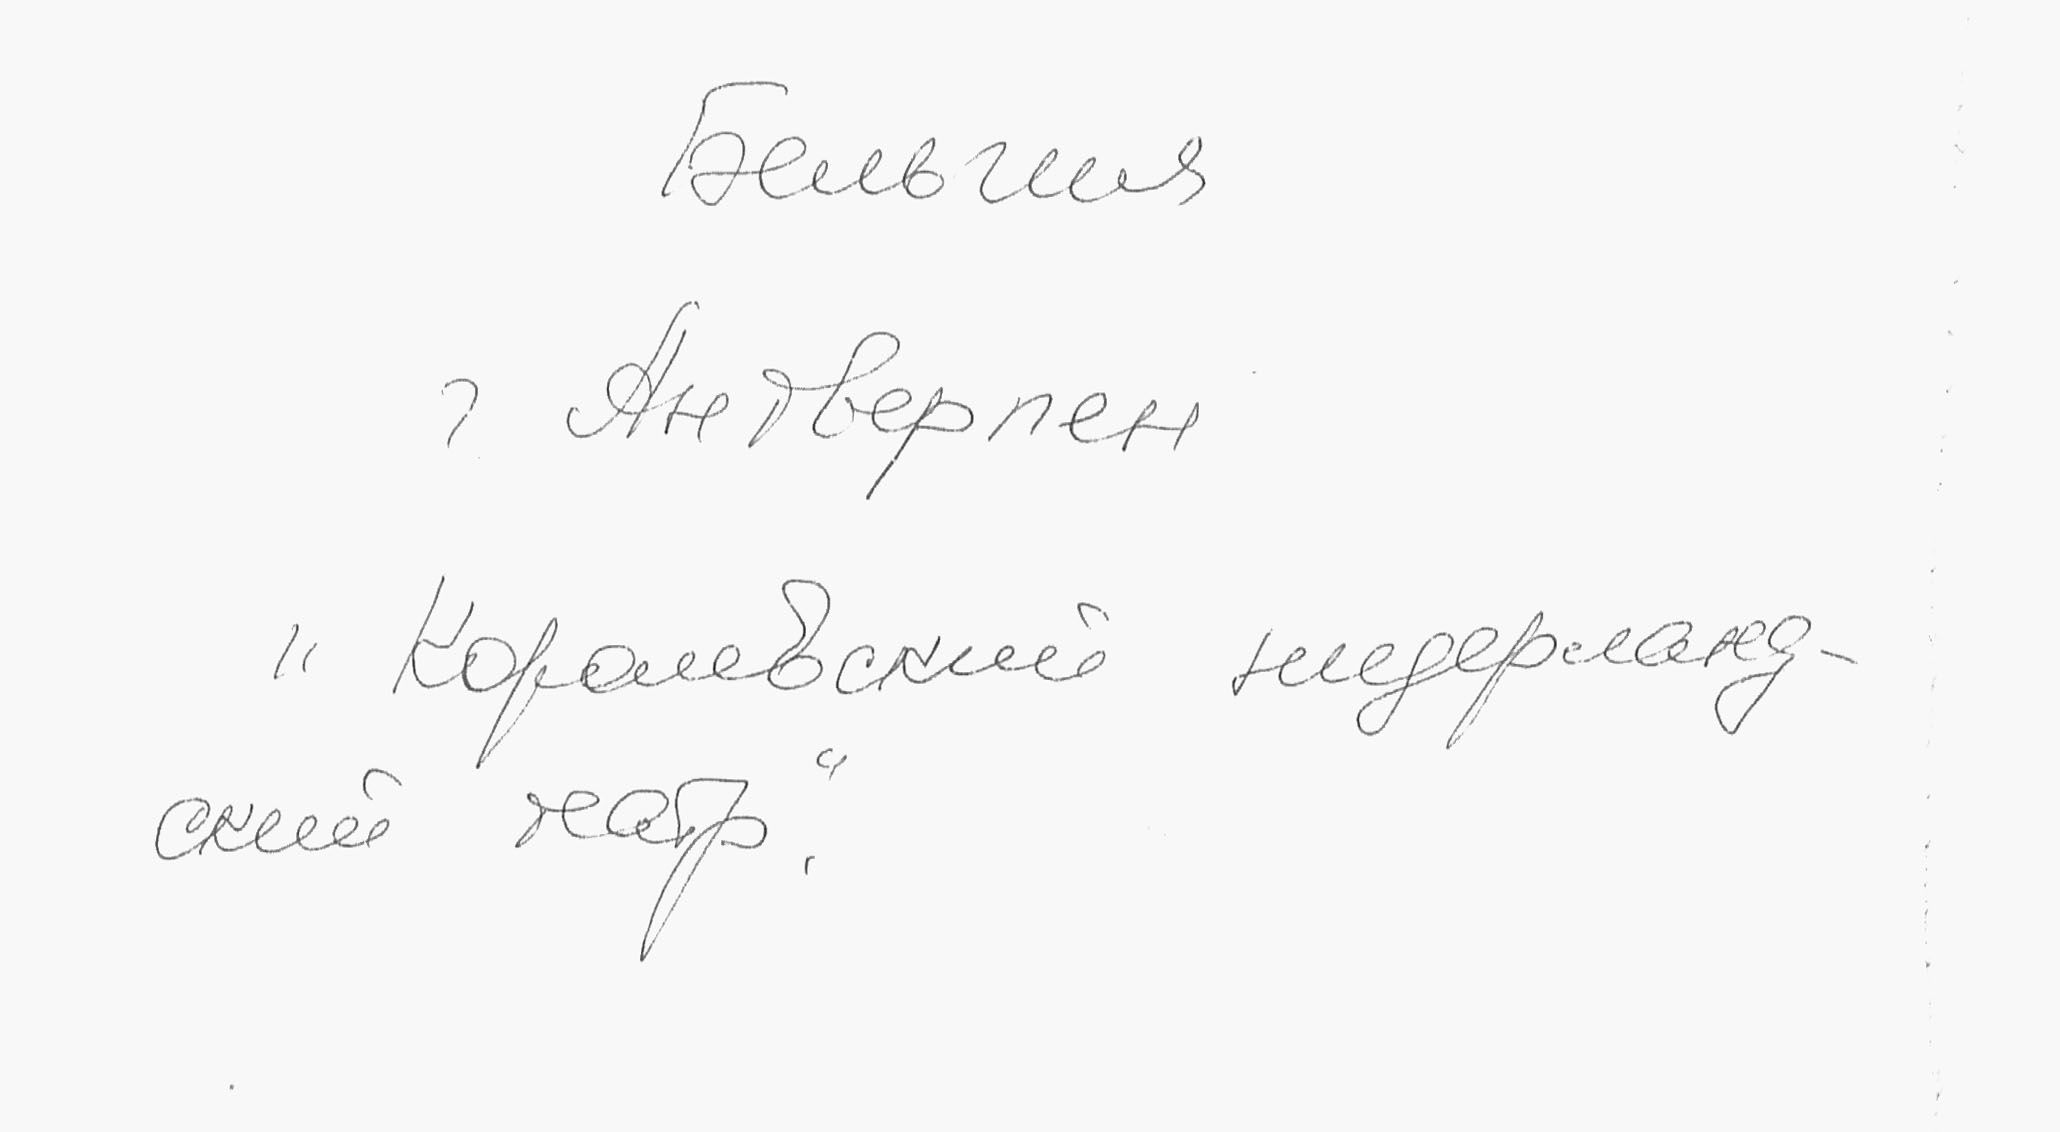 Бельгия
г Антверпен
"Королевский нидерланд-
ский театр".